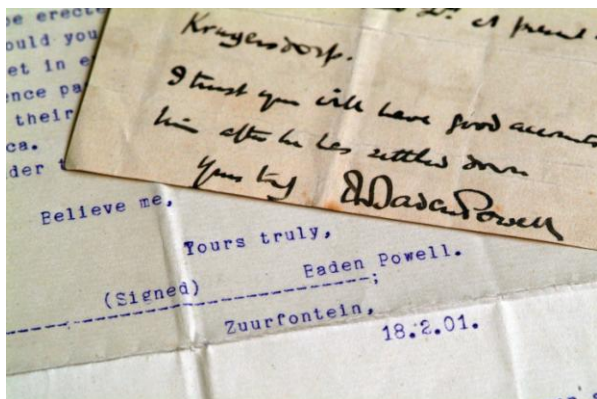 be erecte
ould you
et in e
ence pa
their
ca.
der t
Believe me,
Yours truly,
(Signed) Baden Powell.
Zuurfontein,
18.2.01.
at present
Krugersdorp.
I trust you will have good accounts
him after he has settled down
Yours truly RBaden Powell